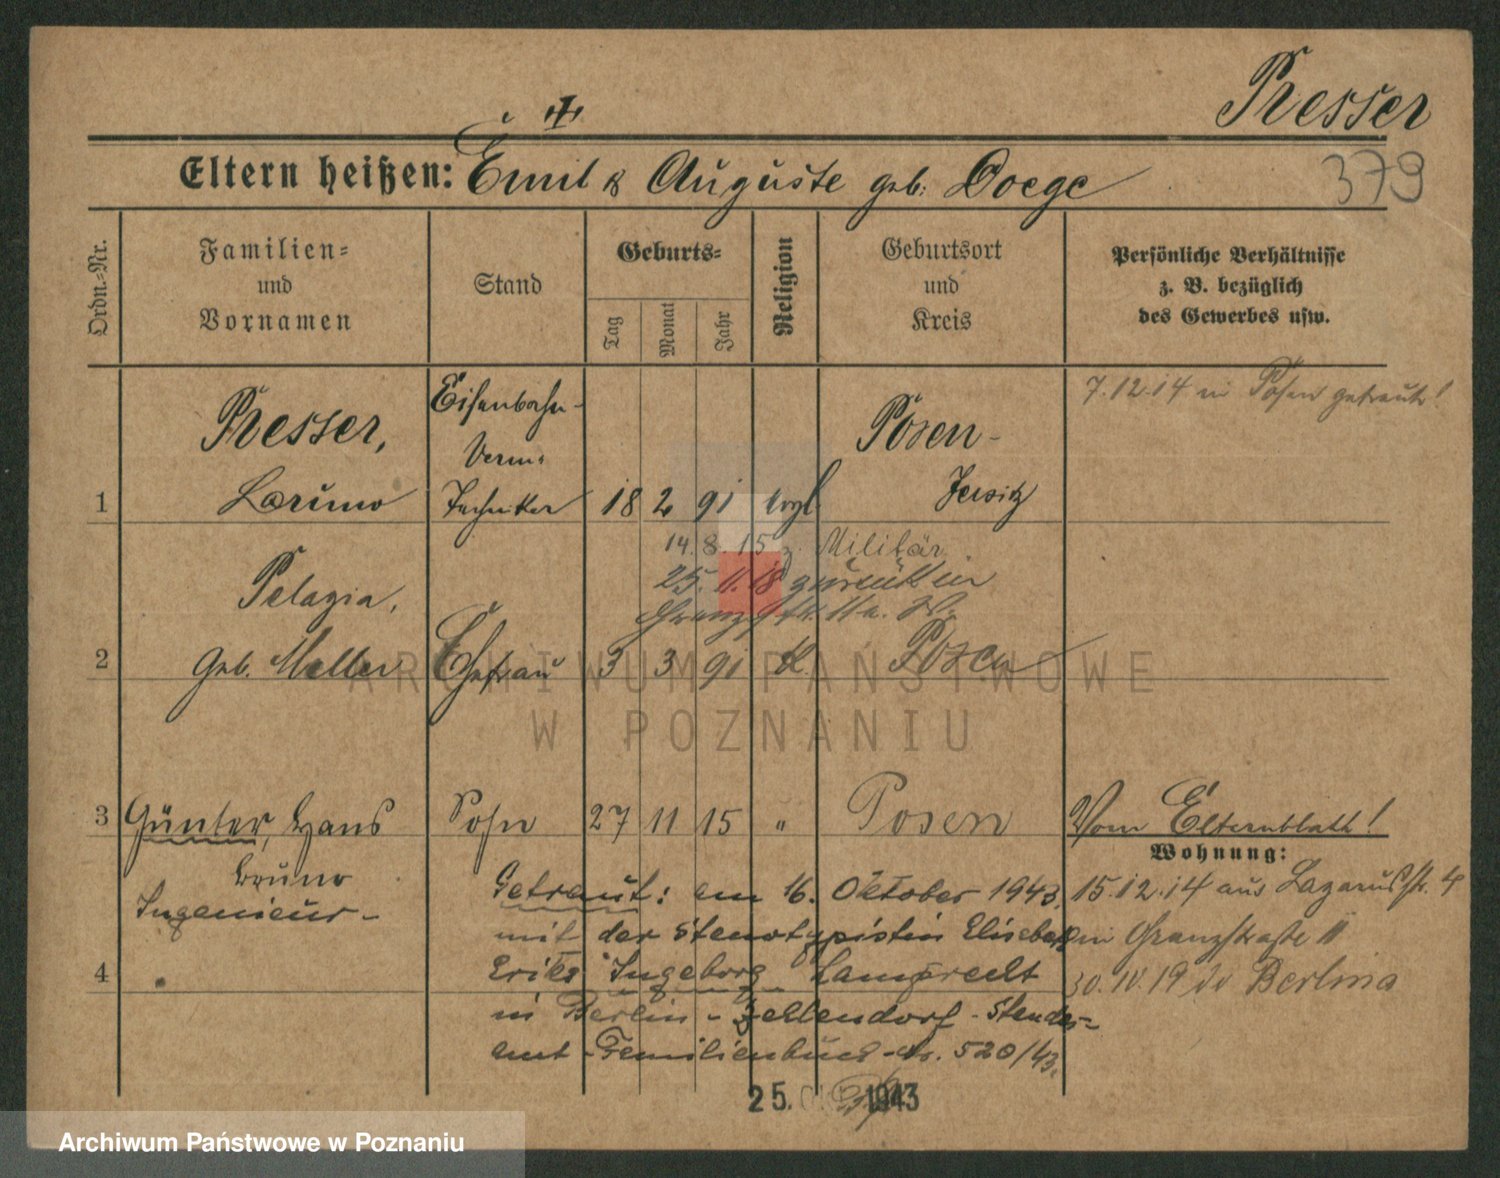 Presser
Eltern heißen: Emil & Auguste geb. Doege
379
Ordn.-Nr.
Familien-
und
Vornamen
Stand
Geburts-
Tag
Monat
Jahr
Religion
Geburtsort
und
Kreis
Persönliche Verhältnisse
z. B. bezüglich
des Gewerbes usw.
7.12.14 in Posen getraut!
Presser,
Eisenbahn-
Posen-
Verm.
1
Bruno
Techniker
18 2 91
evgl.
Jersitz
14.8.15 z. Militär
25.11.18 zurück in
Pelagia,
2
geb. Meller
Ehefrau
3 3 91
k.
Posen
ARCHIWUM PAŃSTWOWE
W POZNANIU
3
Günter, Hans
Sohn
27 11 15
"
Posen
Vom Elternblatt!
Wohnung:
Bruno
Ingenieur-
Getraut: am 16. Oktober 1943
15.12.14 aus Lazarusstr. 4
mit der Stenotypistin Elisabeth
in Granzstraße 11
4
Erika Ingeborg Lamprecht
30.IV.19 Berlin
in Berlin-Zehlendorf-Standes-
amt-Familienbuch-Nr. 520/43.
25. 1943
Archiwum Państwowe w Poznaniu